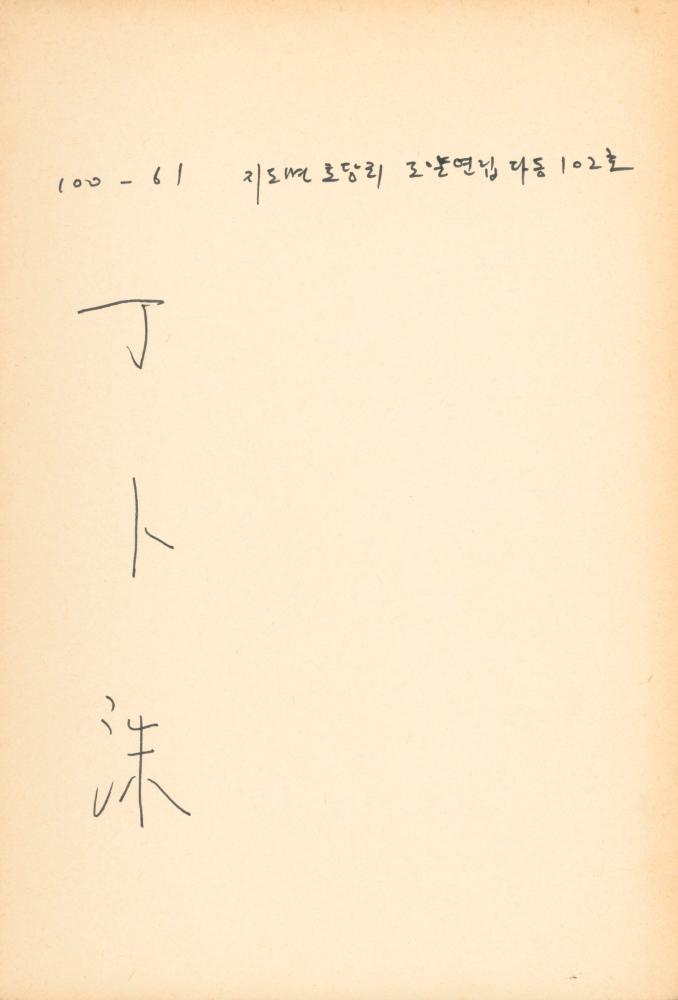 100-61 지도면 토당리 로얄연립 다동 102호
丁卜洙